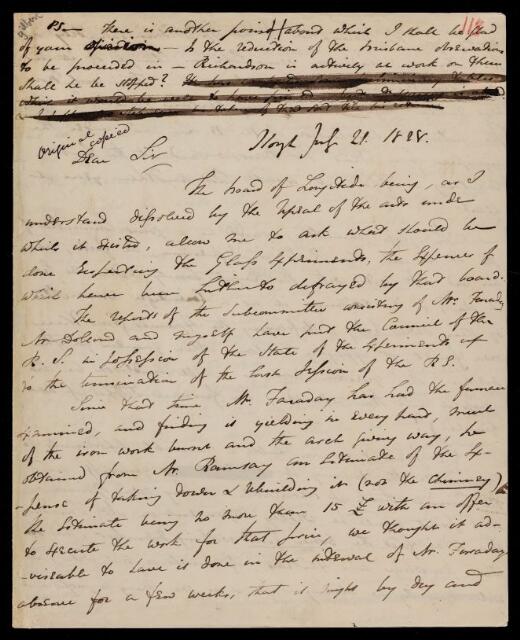 PS — There is another point about which I shall be glad
of your opinion — Is the reduction of the Brisbane observations
to be proceeded in — Richardson is actively at work on them
Shall he be stopped?
Original copied
Dear Sir
Slough July 21. 1828.
The board of Longitude being, as I
understand dissolved by the repeal of the acts under
which it existed, allow me to ask what should be
done respecting the Glass Experiments, the Expenses of
which have been hitherto defrayed by that board.
The reports of the Subcommittee consisting of Mr. Faraday
Mr Dolland and myself have put the Council of the
R. S. in possession of the State of the Experiments up
to the termination of the last Session of the RS.
Since that time Mr. Faraday has had the furnace
examined, and finding it yielding in every part, much
of the iron work burnt and the arch giving way, he
obtained from Mr. Ramsay an Estimate of the Ex-
-pense of taking down & rebuilding it (not the Chimney)
the Estimate being no more than 15 £ with an offer
to execute the work for that price, we thought it ad-
-viseable to have it done in the interval of Mr. Faraday
absence for a few weeks, that it might by day and